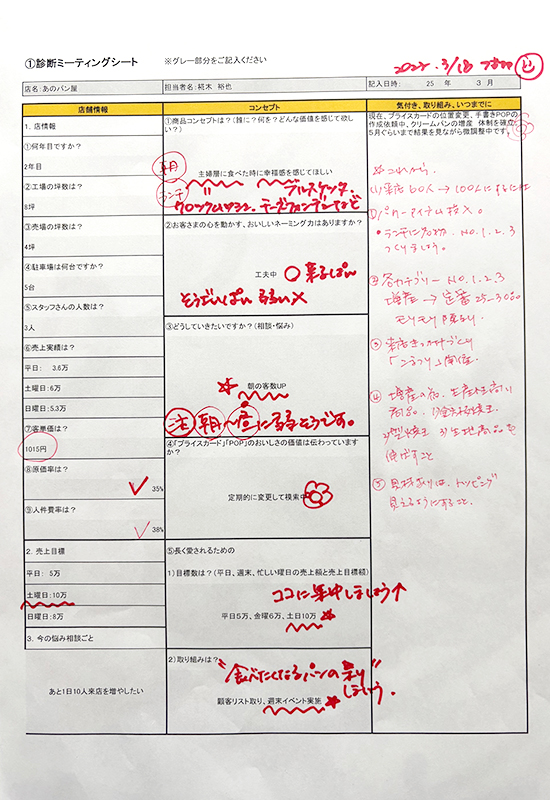 ①診断ミーティングシート ※グレー部分をご記入ください
3/18
店名:あのパン屋 担当者名:糀木 裕也 記入日時: 25 年 3 月
店舗情報
1. 店情報
①何年目ですか?
2年目
②工場の坪数は?
8坪
③売場の坪数は?
4坪
④駐車場は何台ですか?
5台
⑤スタッフさんの人数は?
3人
⑥売上実績は?
平日: 3.6万
土曜日:6万
日曜日:5.3万
⑦客単価は?
1015円
⑧原価率は?
35%
⑨人件費率は?
38%
2. 売上目標
平日: 5万
土曜日:10万
日曜日:8万
3. 今の悩み相談ごと
あと1日10人来店を増やしたい
コンセプト
①商品コンセプトは?(誰に?何を?どんな価値を感じて欲しい?)
朝
主婦層に食べた時に幸福感を感じてほしい
ランチ ブルスケッタ、
クロックムッシュ、チーズフォンデュなど
②お客さまの心を動かす、おいしいネーミング力はありますか?
工夫中 ○菓子ぱん
そうざいぱん 弱い×
③どうしていきたいですか?(相談・悩み)
朝の客数UP
㊟ 朝〜昼に弱そうです。
④「プライスカード」「POP」のおいしさの価値は伝わっていますか?
定期的に変更して模索中
⑤長く愛されるための
1)目標数は?(平日、週末、忙しい曜日の売上額と売上目標額)
ココに集中しましょう↑
平日5万、金曜6万、土日10万
2)取り組みは?
"食べたくなるパンの祭り"
しましょう。
顧客リスト取り、週末イベント実施
気付き、取り組み、いつまでに
現在、プライスカードの位置変更、手書きPOPの
作成依頼中、クリームパンの増産 体制を確立
5月ぐらいまで結果を見ながら微調整中です。
これから
(1)来店60人→100人にするには
①パワーアイテム投入。
・ランチに名物、NO.1.2.3
つくりましょう。
②各カテゴリー NO.1.2.3
増産→定番25-30%
モリモリ陳列。
③来店きっかけづくり
開催。
④増産の為、生産性高い
商品。
伸ばすこと
⑤ トッピング
見えるようにすること。